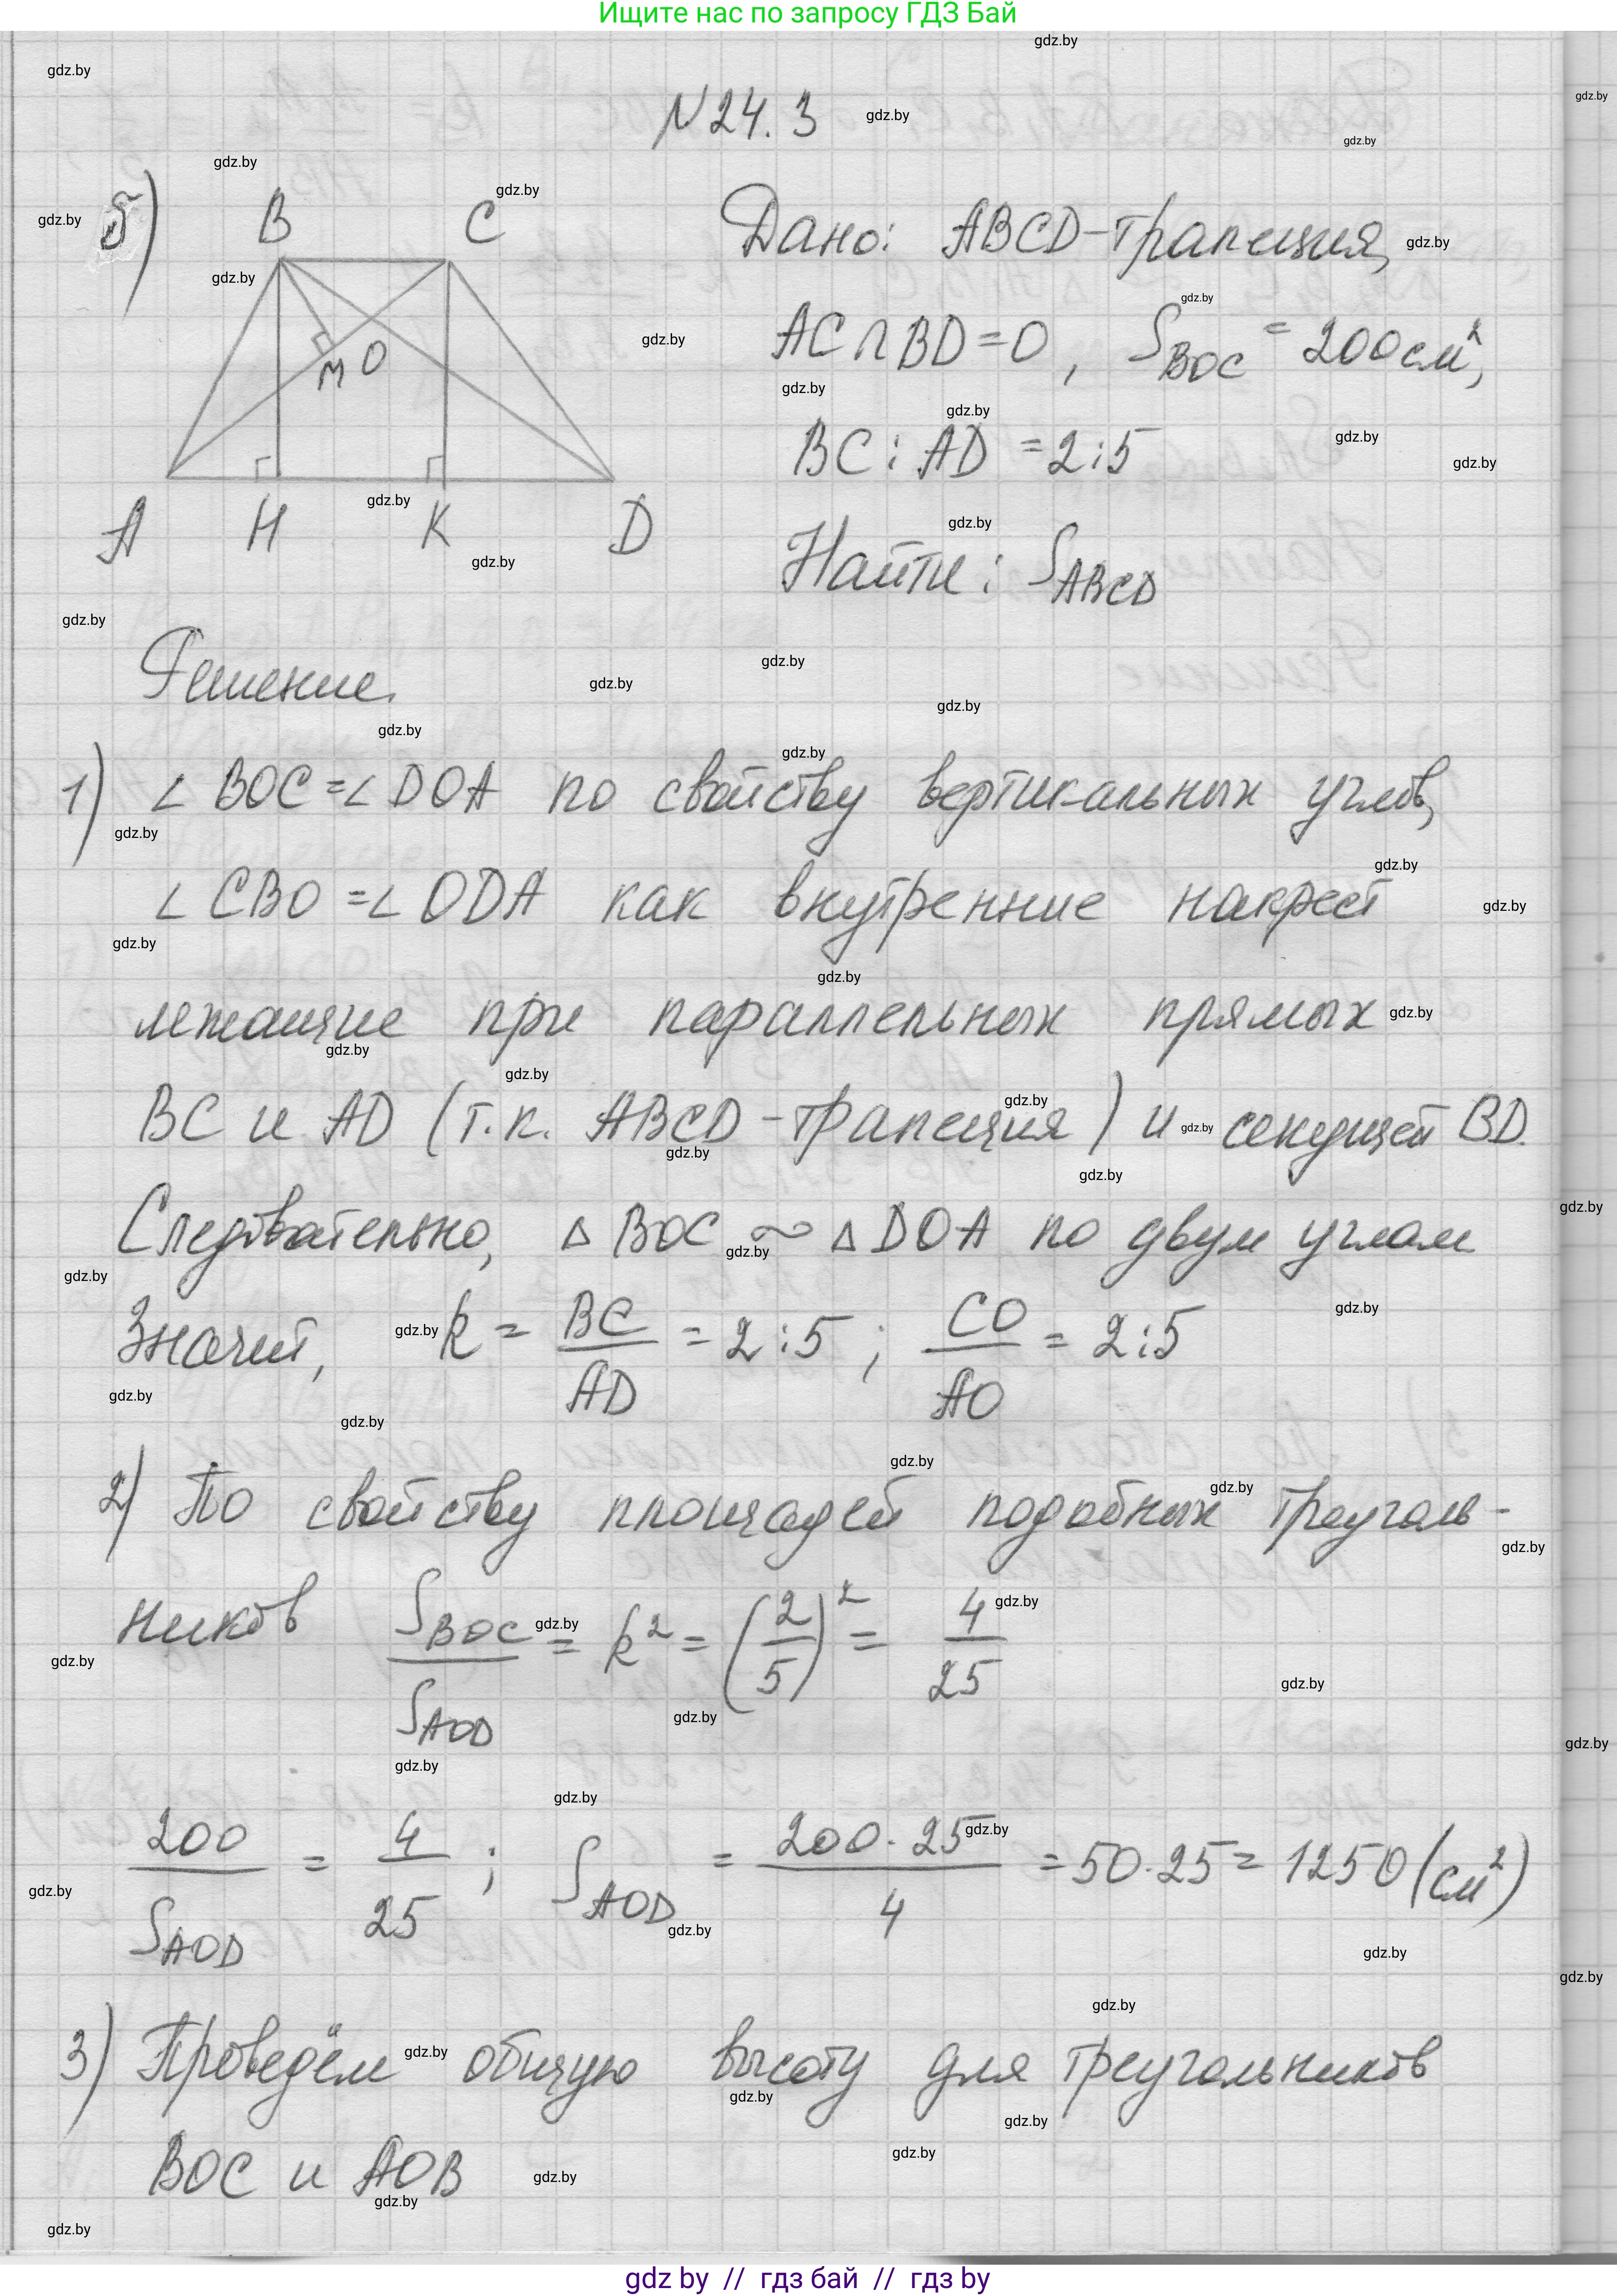 Ищите нас по запросу ГДЗ Бай
N 24. 3
б)
B C
M O
A H K D
Дано: ABCD-трапеция,
AC∩BD=O, S_BOC = 200см²,
BC : AD = 2:5
Найти: S_ABCD
Решение.
1) ∠ BOC =∠ DOA по свойству вертикальных углов,
∠ CBO =∠ ODA как внутренние накрест
лежащие при параллельных прямых
BC и AD (т.к. ABCD - трапеция) и секущей BD.
Следовательно, △ BOC ∼ △ DOA по двум углам
Значит, k = BC/AD = 2:5 ; CO/AO = 2:5
2) По свойству площадей подобных треуголь-
ников S_BOC/S_AOD = k² = (2/5)² = 4/25
200/S_AOD = 4/25 ; S_AOD = 200·25/4 = 50·25 = 1250 (см²)
3) Проведём общую высоту для треугольников
BOC и AOB
gdz by // гдз бай // гдз by